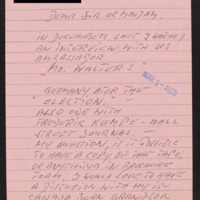 DEAR SIR OR MADAM,
IN DECEMBER LAST I WATCHED
AN INTERVIEW WITH US
AMBASSADOR
"MR. WALTERS"
"GERMANY AFTER THE
ELECTION."
ALSO ONE WITH
FREDERIK KEMPE - WALL
STREET JOURNAL -
MY QUESTION, IS IT POSSIBLE
TO HAVE A COPY OF THE TAPE,
OR ANYTHING IN BROCHURE
FORM. I WOULD LOVE TO HAVE
A DISCUSSION WITH MY
CANADA BORN GRANDSON